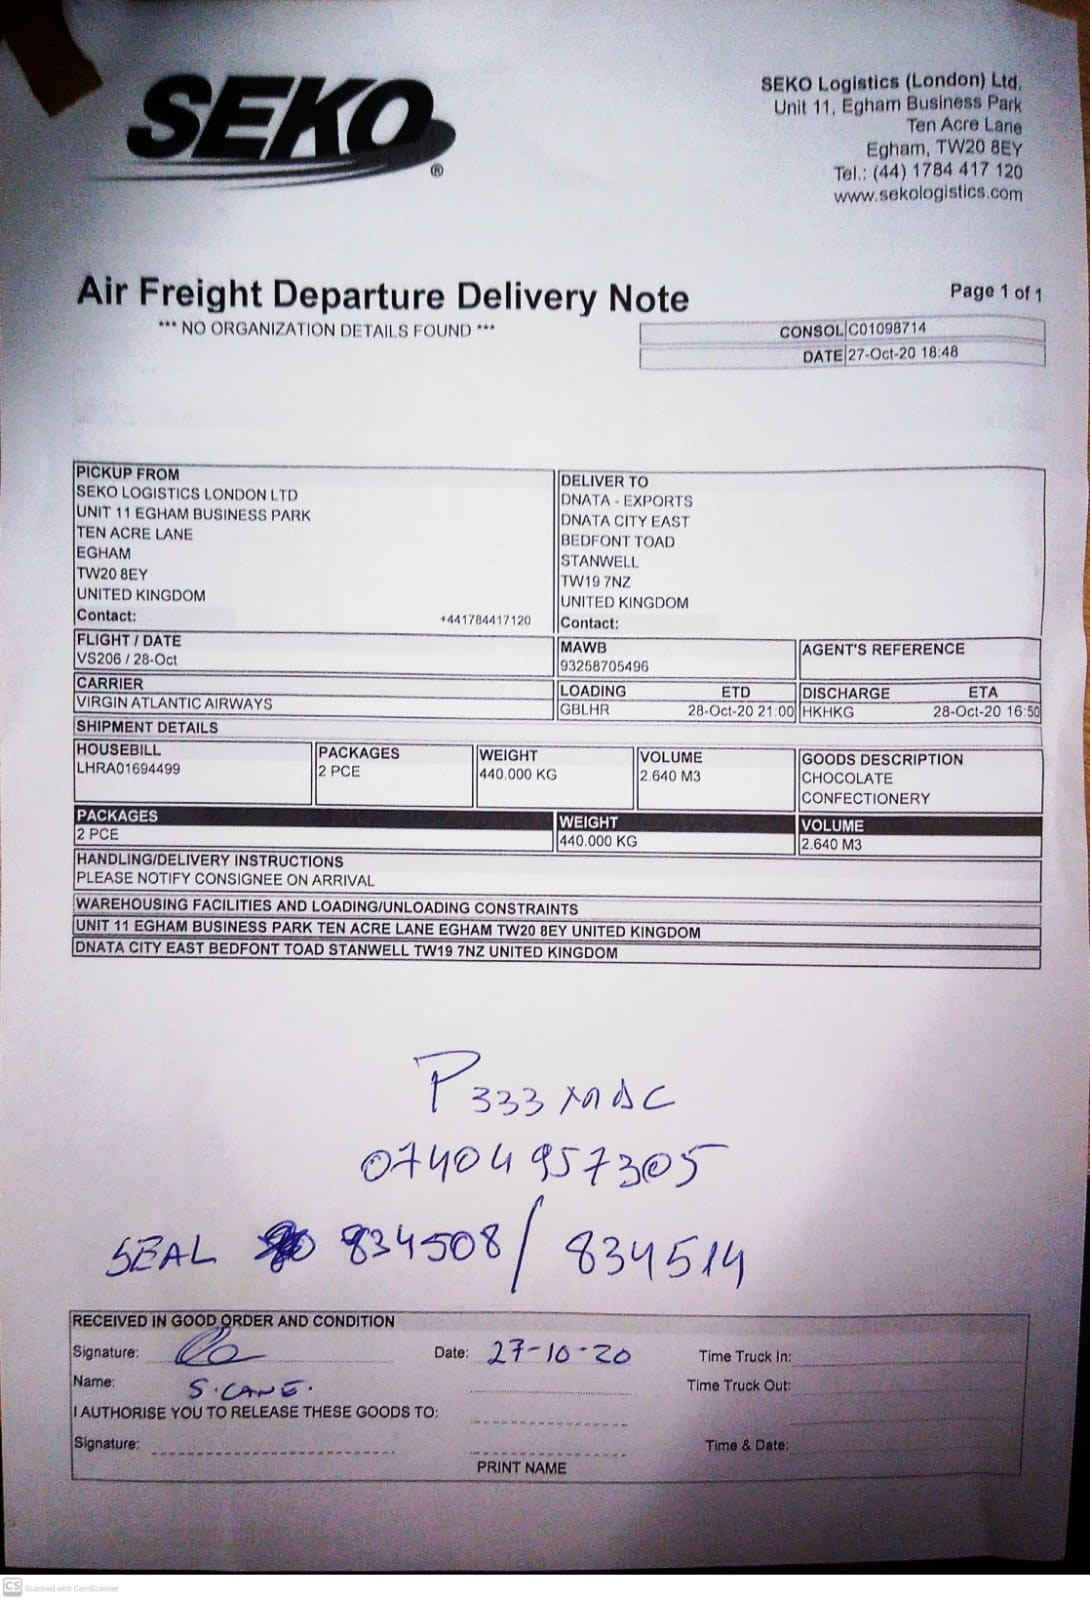 SEKO
®
SEKO Logistics (London) Ltd.
Unit 11, Egham Business Park
Ten Acre Lane
Egham, TW20 8EY
Tel.: (44) 1784 417 120
www.sekologistics.com
Air Freight Departure Delivery Note
Page 1 of 1
*** NO ORGANIZATION DETAILS FOUND ***
CONSOL C01098714
DATE 27-Oct-20 18:48
PICKUP FROM
SEKO LOGISTICS LONDON LTD
UNIT 11 EGHAM BUSINESS PARK
TEN ACRE LANE
EGHAM
TW20 8EY
UNITED KINGDOM
Contact: +441784417120
DELIVER TO
DNATA - EXPORTS
DNATA CITY EAST
BEDFONT TOAD
STANWELL
TW19 7NZ
UNITED KINGDOM
Contact:
FLIGHT / DATE
VS206 / 28-Oct
MAWB
93258705496
AGENT'S REFERENCE
CARRIER
VIRGIN ATLANTIC AIRWAYS
LOADING ETD
GBLHR 28-Oct-20 21:00
DISCHARGE ETA
HKHKG 28-Oct-20 16:50
SHIPMENT DETAILS
HOUSEBILL
LHRA01694499
PACKAGES
2 PCE
WEIGHT
440.000 KG
VOLUME
2.640 M3
GOODS DESCRIPTION
CHOCOLATE
CONFECTIONERY
PACKAGES
2 PCE
WEIGHT
440.000 KG
VOLUME
2.640 M3
HANDLING/DELIVERY INSTRUCTIONS
PLEASE NOTIFY CONSIGNEE ON ARRIVAL
WAREHOUSING FACILITIES AND LOADING/UNLOADING CONSTRAINTS
UNIT 11 EGHAM BUSINESS PARK TEN ACRE LANE EGHAM TW20 8EY UNITED KINGDOM
DNATA CITY EAST BEDFONT TOAD STANWELL TW19 7NZ UNITED KINGDOM
P333
07404957305
SEAL 834508/834514
RECEIVED IN GOOD ORDER AND CONDITION
Signature: Date: 27-10-20 Time Truck In:
Name: S. CANE. Time Truck Out:
I AUTHORISE YOU TO RELEASE THESE GOODS TO:
Signature: Time & Date:
PRINT NAME
CS Scanned with CamScanner